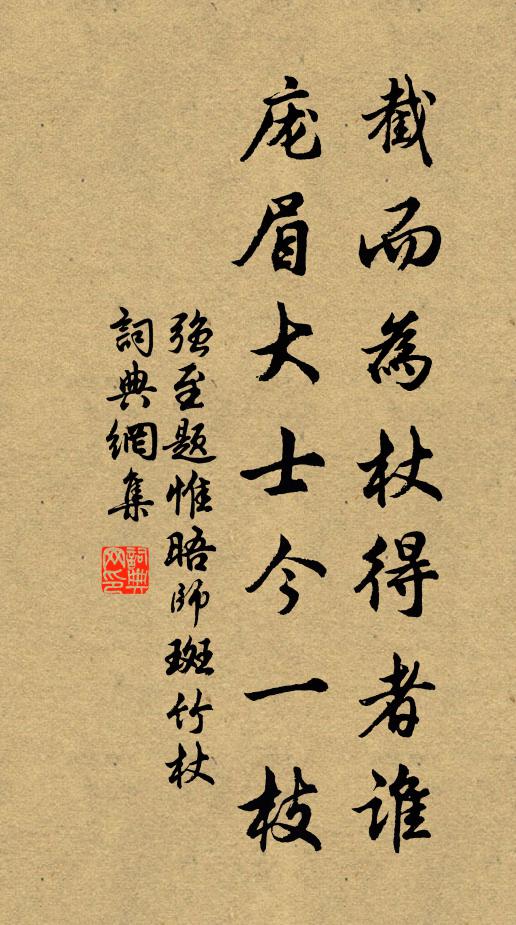 截而為杖得者誰
庞眉大士今一枝
強至题惟晤師斑竹杖
詞典網集
詞典
网印